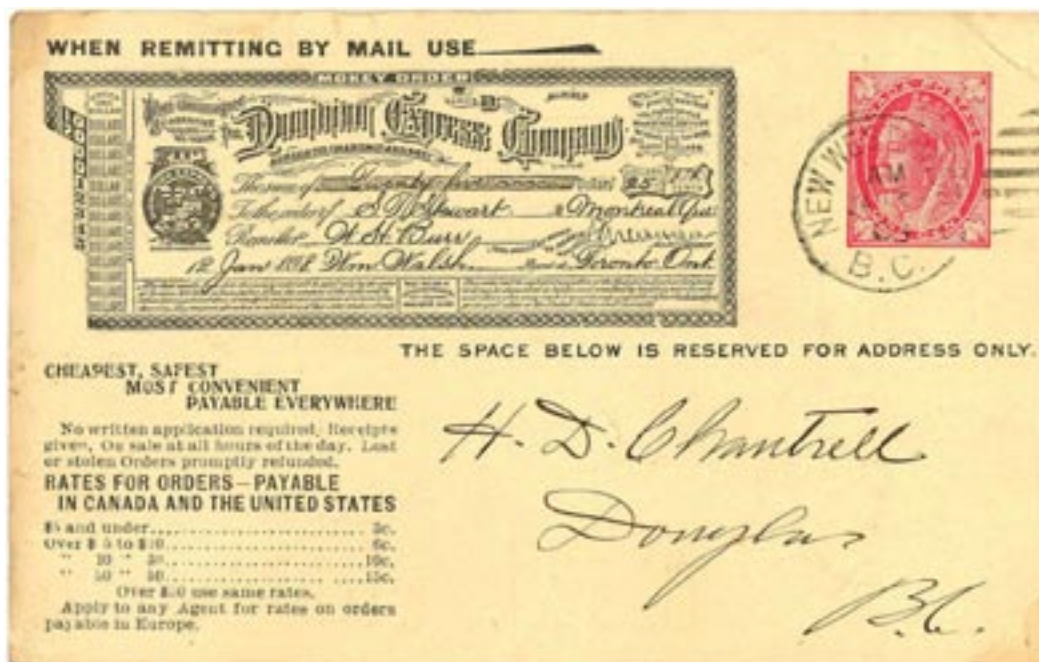 WHEN REMITTING BY MAIL USE
MONEY ORDER
Dominion Express Company
The sum of Twenty five 25
To the order of S. D. Stewart Montreal Que
Remitter W. H. Burr
12 Jan 1898 Wm Walsh Toronto Ont.
NEW W
AM
B.C.
THE SPACE BELOW IS RESERVED FOR ADDRESS ONLY.
CHEAPEST, SAFEST
MOST CONVENIENT
PAYABLE EVERYWHERE
No written application required, Receipts
given, On sale at all hours of the day. Lost
or stolen Orders promptly refunded.
RATES FOR ORDERS — PAYABLE
IN CANADA AND THE UNITED STATES
$5 and under.................... 3c.
Over $ 5 to $10.................... 6c.
" 10 " 30.................... 10c.
" 30 " 50.................... 15c.
Over $50 use same rates.
Apply to any Agent for rates on orders
payable in Europe.
H. D. Chantrell
Douglas
B.C.